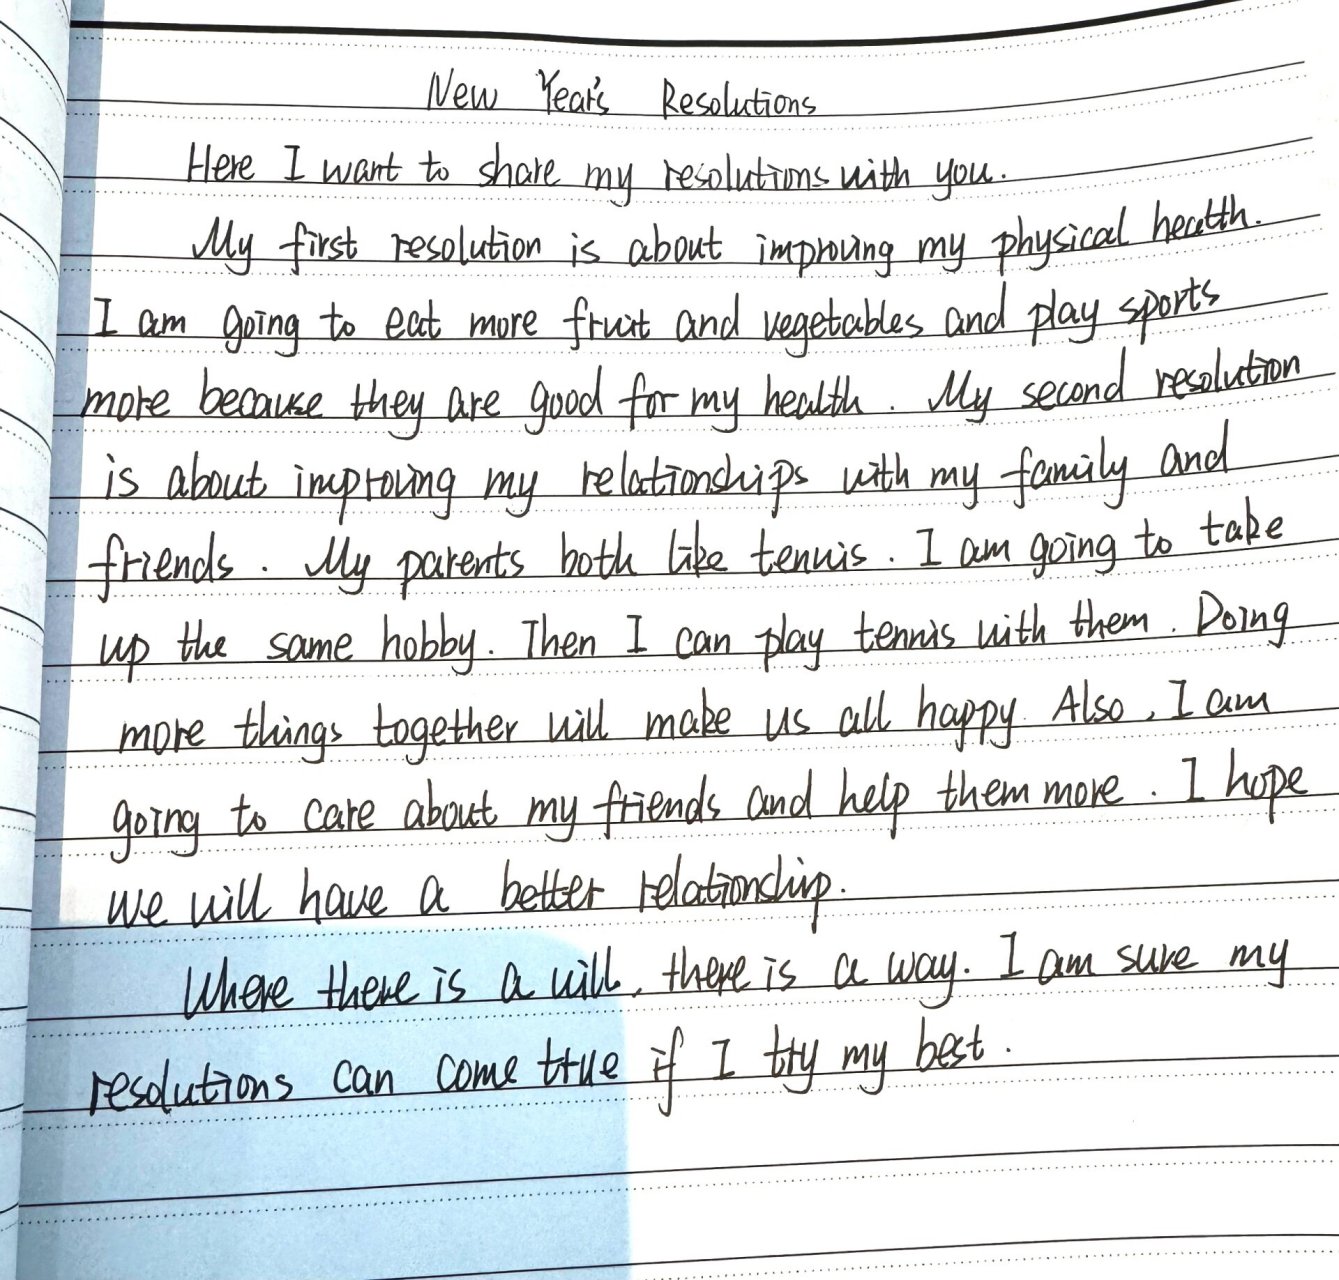 New Year's Resolutions
Here I want to share my resolutions with you.
My first resolution is about improving my physical health.
I am going to eat more fruit and vegetables and play sports
more because they are good for my health. My second resolution
is about improving my relationships with my family and
friends. My parents both like tennis. I am going to take
up the same hobby. Then I can play tennis with them. Doing
more things together will make us all happy. Also, I am
going to care about my friends and help them more. I hope
we will have a better relationship.
Where there is a will, there is a way. I am sure my
resolutions can come true if I try my best.